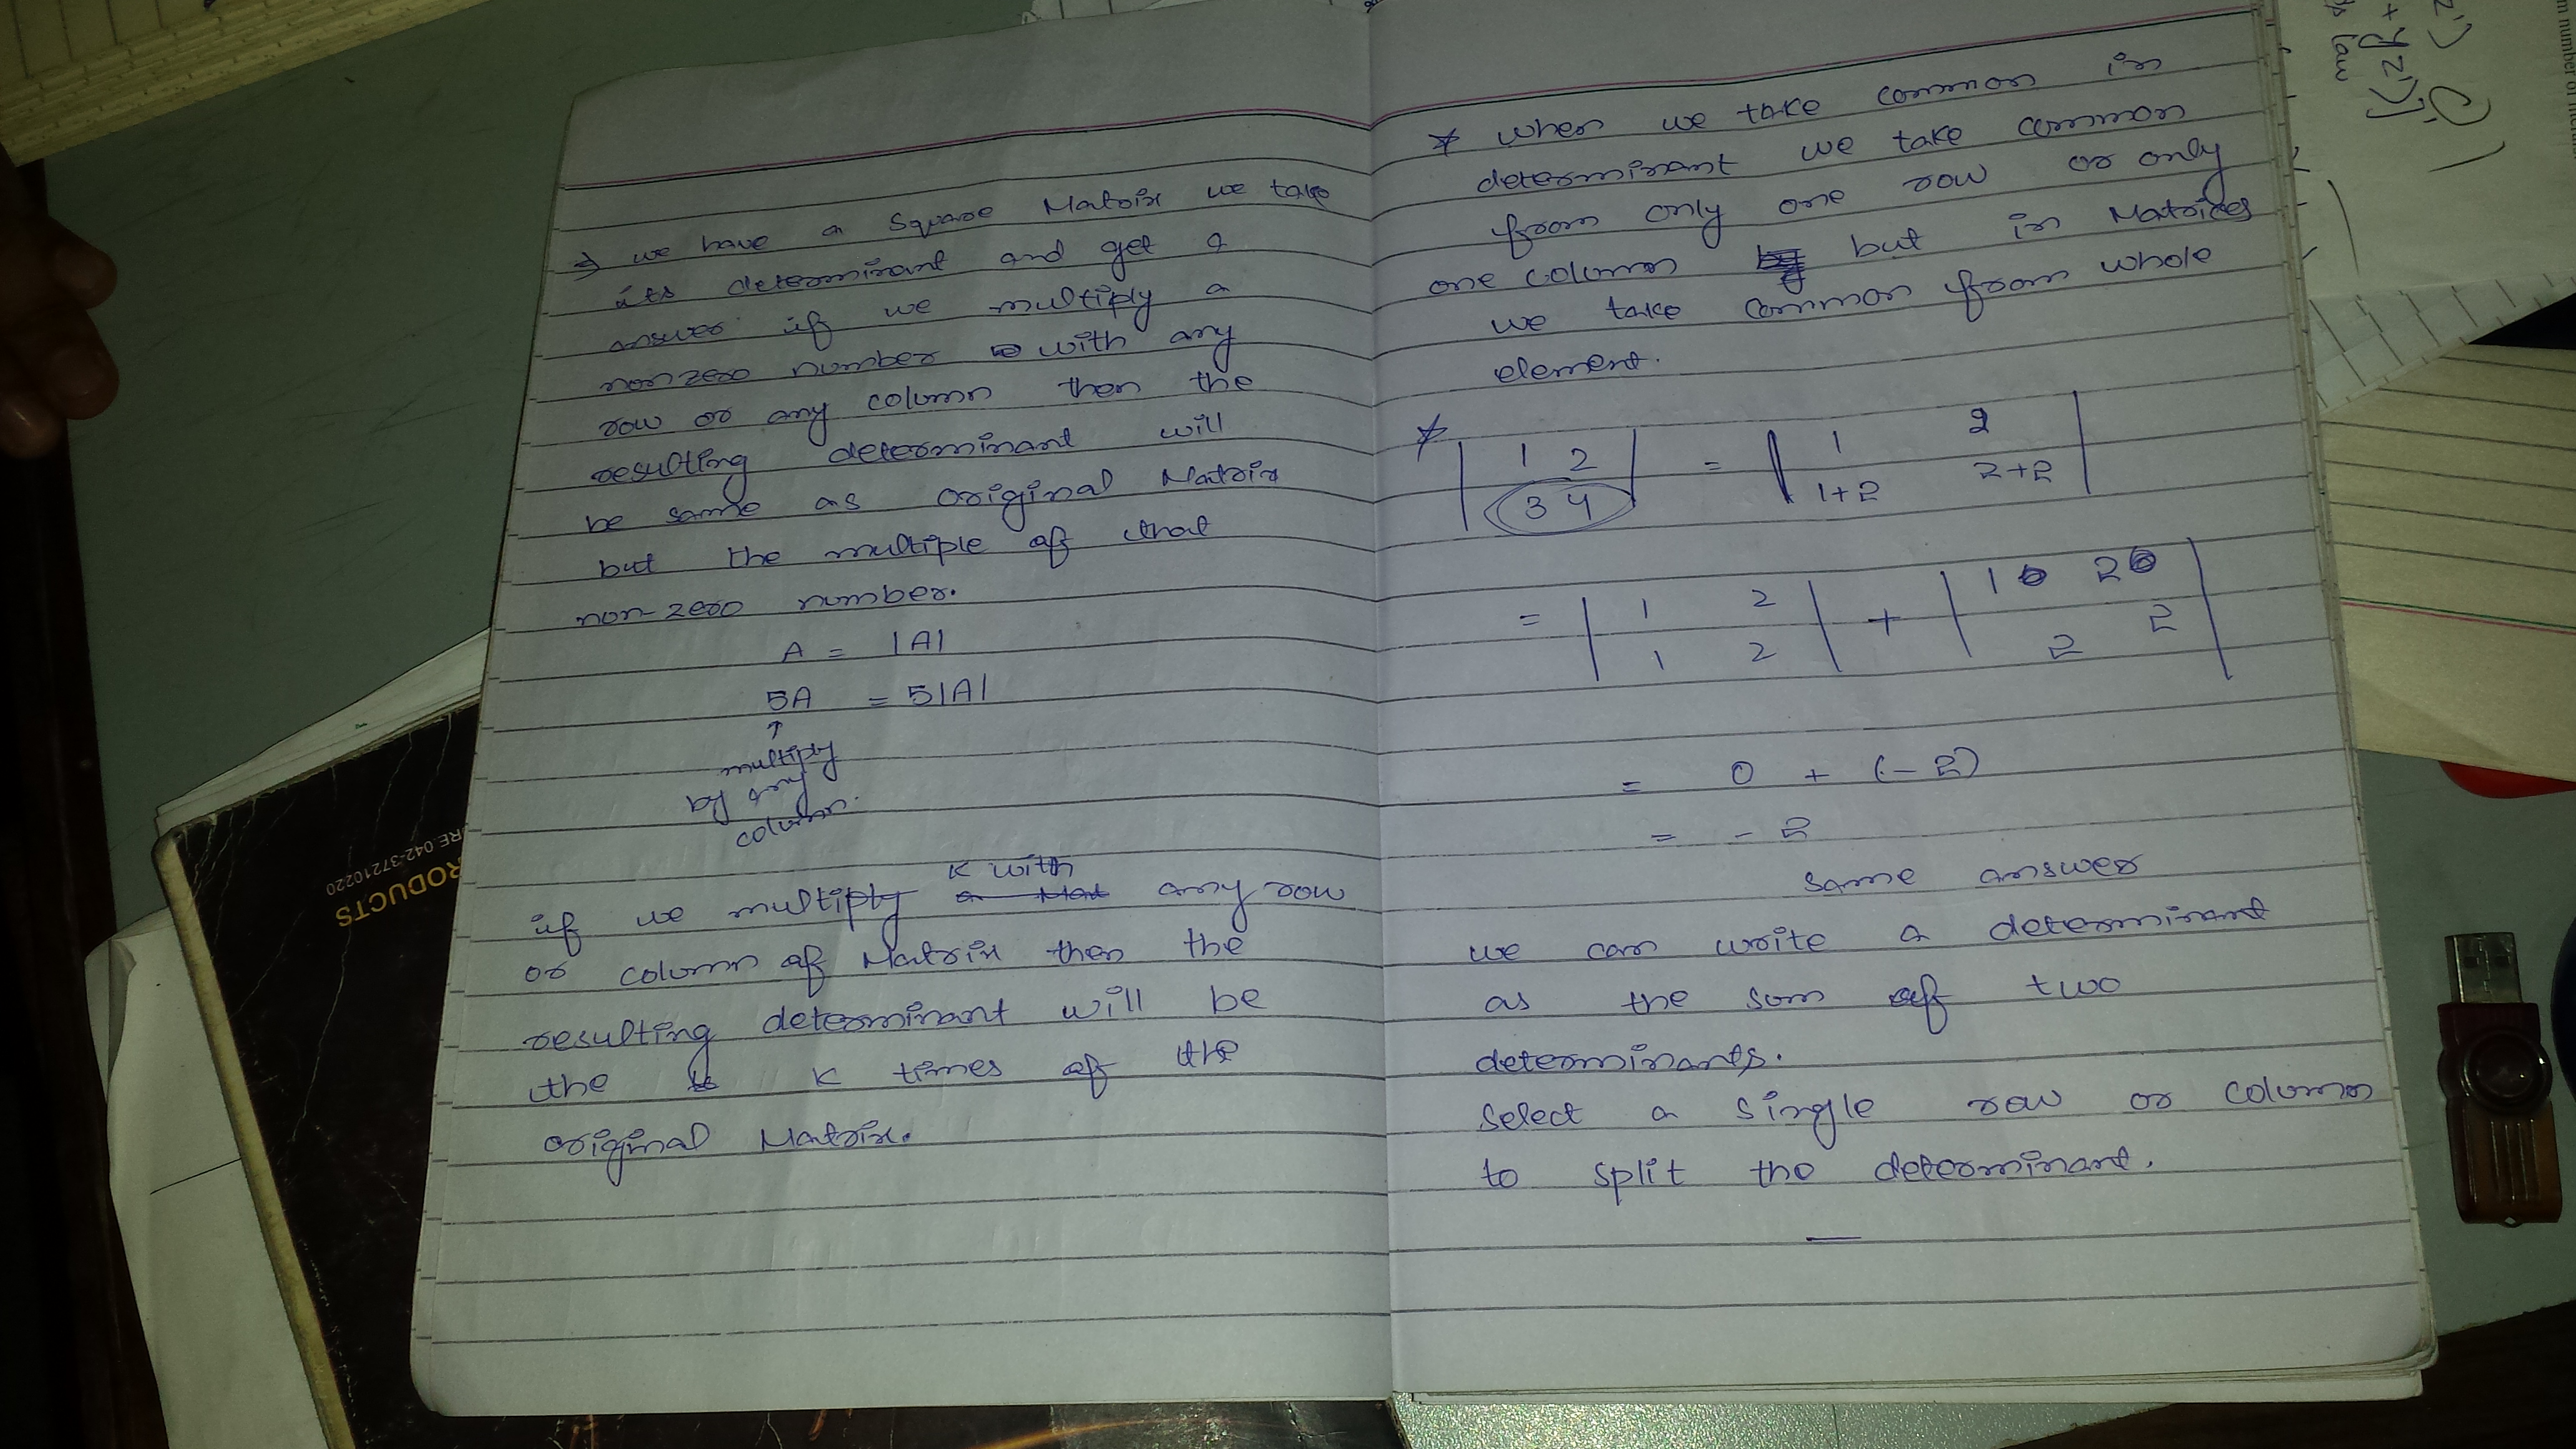 → we have a Square Matrix we take
its determinant and get a
answer if we multiply a
non zero number with any
row or any column then the
resulting determinant will
be same as original Matrix
but the multiple of that
non-zero number.
A = |A|
5A = 5|A|
↑
multiply
by any
column.
K with
if we multiply any row
or column of Matrix then the
resulting determinant will be
the K times of the
original Matrix.
* when we take common in
determinant we take common
from only one row or only
one column but in Matrices
we take common from whole
element.
* | 1 2 | = | 1 2 |
| 3 4 | | 1+2 2+2 |
= | 1 2 | + | 1 2 |
| 1 2 | | 2 2 |
= 0 + (-2)
= -2
same answer
we can write a determinant
as the som of two
determinants.
select a single row or column
to split the determinant.
RE.042-37210220
RODUCTS
law
m number of